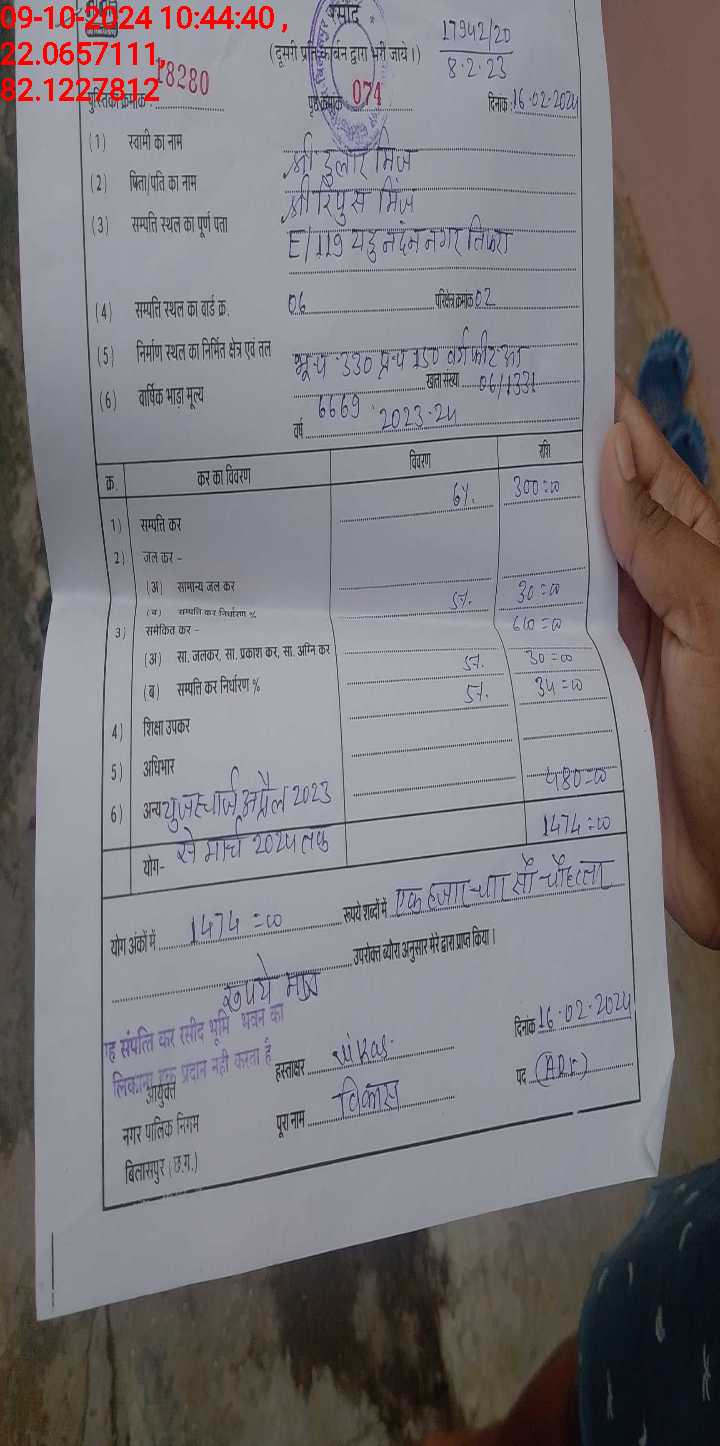 09-10-2024 10:44:40 ,
22.0657111,
82.1227812
रसीद
(दूसरी प्रति कार्बन द्वारा भरी जाये।)
17942/20
8.2.23
पुस्तिका क्रमांक 18280
पृष्ठ क्रमांक 074
दिनांक 16-02-2024
(1) स्वामी का नाम श्री दुलार मिंज
(2) पिता/पति का नाम श्री रिपुस मिंज
(3) सम्पत्ति स्थल का पूर्ण पता E/119 यदुनंदन नगर तिफरा
(4) सम्पत्ति स्थल का वार्ड क्र. 06 परिक्षेत्र क्रमांक 02
(5) निर्माण स्थल का निर्मित क्षेत्र एवं तल भू-प 330 प्र-प 150 वर्गफीट
खाता संख्या 06/1331
(6) वार्षिक भाड़ा मूल्य 6669
वर्ष 2023-24
क्र. कर का विवरण विवरण राशि
1) सम्पत्ति कर 6%. 300=00
2) जल कर -
(अ) सामान्य जल कर 5%. 30=00
(ब) सम्पत्ति कर निर्धारण % 600=00
3) समेकित कर -
(अ) सा. जलकर, सा. प्रकाश कर, सा. अग्नि कर 5%. 30=00
(ब) सम्पत्ति कर निर्धारण % 5%. 34=00
4) शिक्षा उपकर
5) अधिभार
6) अन्य युजर चार्ज अप्रैल 2023 480=00
से मार्च 2024 तक
योग- 1474=00
योग अंकों में 1474=00 रूपये शब्दों में एक हजार चार सौ चौहत्तर
रूपये मात्र उपरोक्त ब्योरा अनुसार मेरे द्वारा प्राप्त किया।
यह संपत्ति कर रसीद भूमि भवन का
मालिकाना हक प्रदान नही करता है
आयुक्त
नगर पालिक निगम
बिलासपुर (छ.ग.)
हस्ताक्षर Vikas
पूरा नाम विकास
दिनांक 16-02-2024
पद